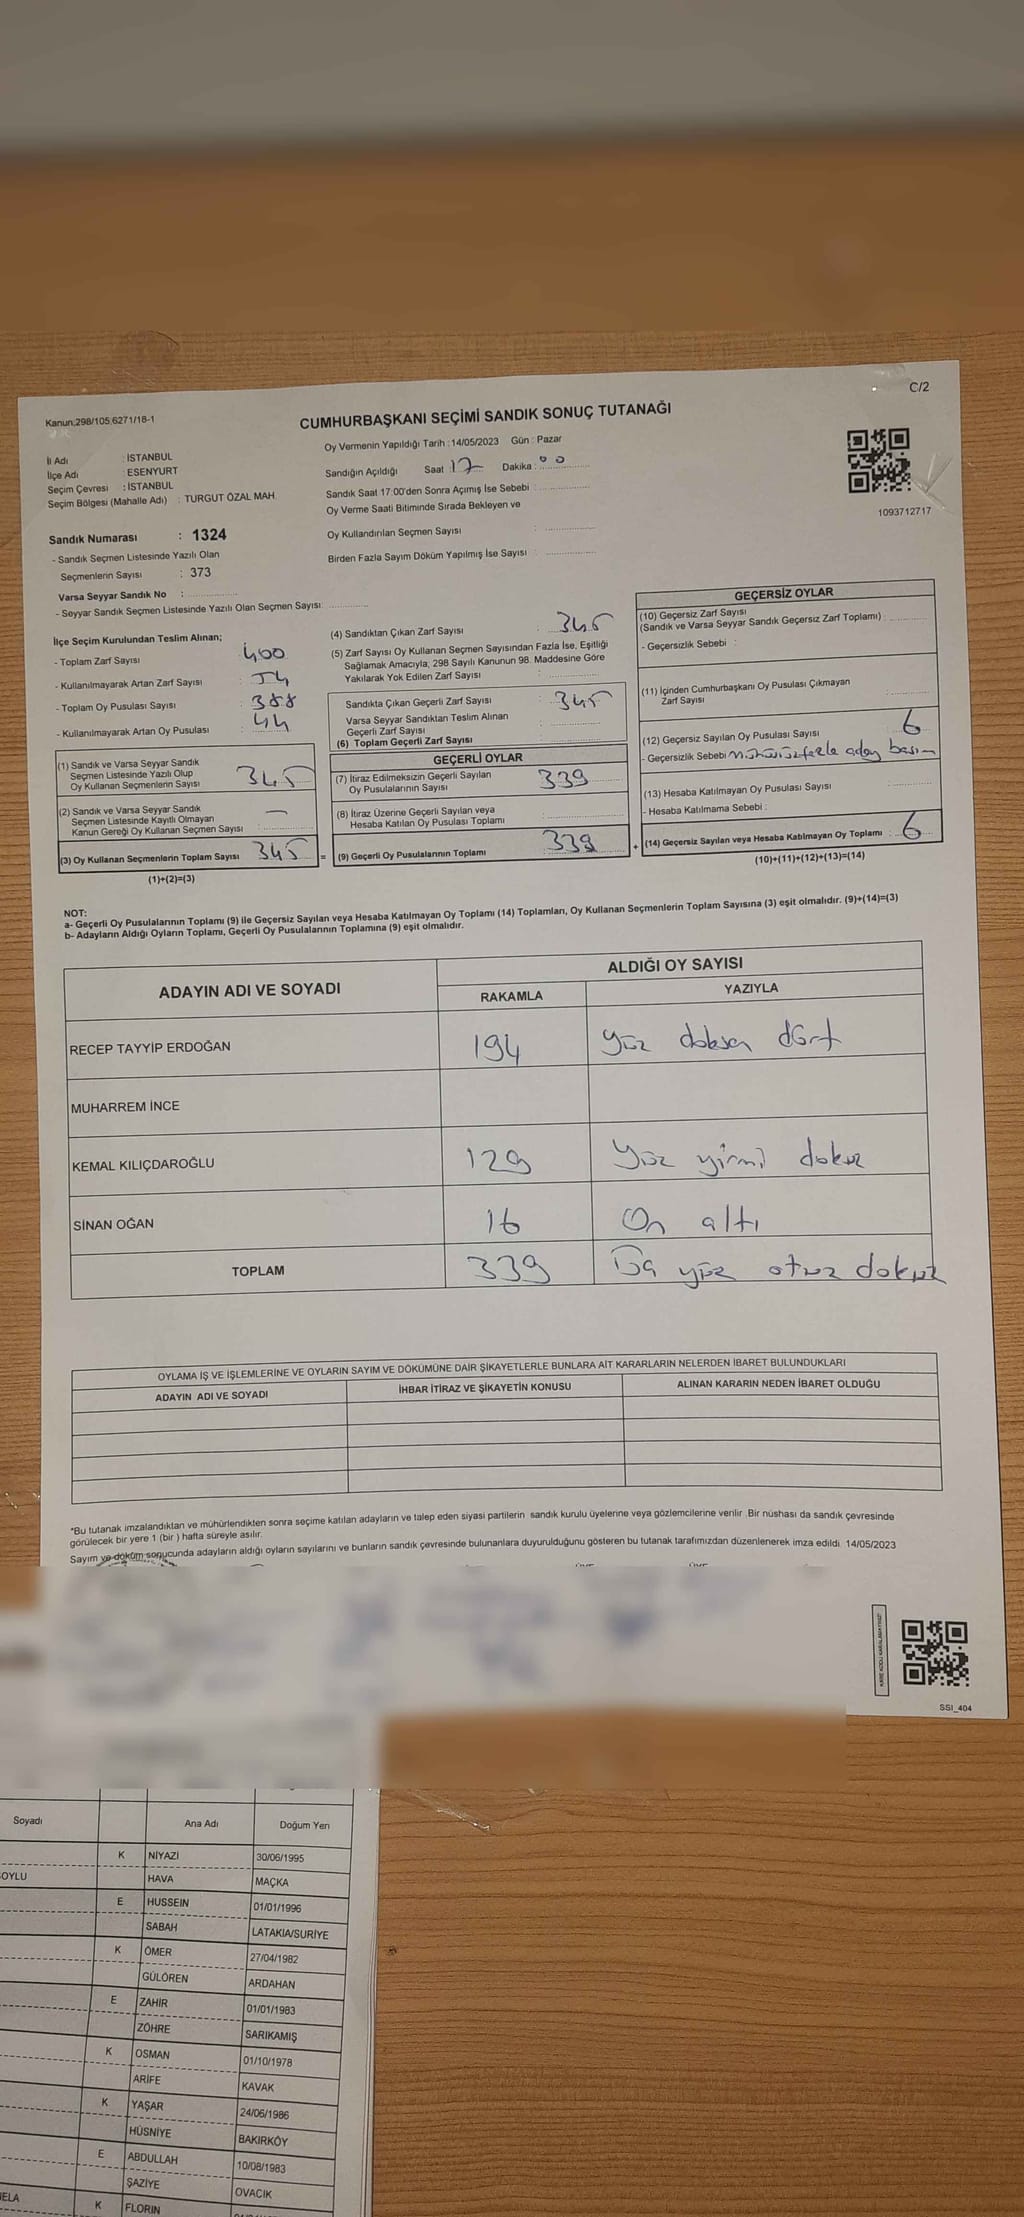 C/2
Kanun.298/105 6271/18-1
CUMHURBAŞKANI SEÇİMİ SANDIK SONUÇ TUTANAĞI
İl Adı : İSTANBUL
İlçe Adı : ESENYURT
Seçim Çevresi : İSTANBUL
Seçim Bölgesi (Mahalle Adı) : TURGUT ÖZAL MAH.
Oy Vermenin Yapıldığı Tarih : 14/05/2023 Gün : Pazar
Sandığın Açıldığı Saat 17 Dakika : 00
Sandık Saat 17:00'den Sonra Açımış İse Sebebi :
Oy Verme Saati Bitiminde Sırada Bekleyen ve
Oy Kullandırılan Seçmen Sayısı :
Birden Fazla Sayım Döküm Yapılmış İse Sayısı :
1093712717
Sandık Numarası : 1324
- Sandık Seçmen Listesinde Yazılı Olan
Seçmenlerin Sayısı : 373
Varsa Seyyar Sandık No :
- Seyyar Sandık Seçmen Listesinde Yazılı Olan Seçmen Sayısı:
İlçe Seçim Kurulundan Teslim Alınan;
- Toplam Zarf Sayısı : 400
- Kullanılmayarak Artan Zarf Sayısı : 54
- Toplam Oy Pusulası Sayısı : 388
- Kullanılmayarak Artan Oy Pusulası : 44
(1) Sandık ve Varsa Seyyar Sandık
Seçmen Listesinde Yazılı Olup
Oy Kullanan Seçmenlerin Sayısı : 345
(2) Sandık ve Varsa Seyyar Sandık
Seçmen Listesinde Kayıtlı Olmayan
Kanun Gereği Oy Kullanan Seçmen Sayısı : —
(3) Oy Kullanan Seçmenlerin Toplam Sayısı : 345 =
(1)+(2)=(3)
(4) Sandıktan Çıkan Zarf Sayısı : 345
(5) Zarf Sayısı Oy Kullanan Seçmen Sayısından Fazla İse, Eşitliği
Sağlamak Amacıyla; 298 Sayılı Kanunun 98. Maddesine Göre
Yakılarak Yok Edilen Zarf Sayısı :
Sandıkta Çıkan Geçerli Zarf Sayısı : 345
Varsa Seyyar Sandıktan Teslim Alınan
Geçerli Zarf Sayısı :
(6) Toplam Geçerli Zarf Sayısı :
GEÇERLİ OYLAR
(7) İtiraz Edilmeksizin Geçerli Sayılan
Oy Pusulalarının Sayısı : 339
(8) İtiraz Üzerine Geçerli Sayılan veya
Hesaba Katılan Oy Pusulası Toplamı :
(9) Geçerli Oy Pusulalarının Toplamı : 339 +
GEÇERSİZ OYLAR
(10) Geçersiz Zarf Sayısı
(Sandık ve Varsa Seyyar Sandık Geçersiz Zarf Toplamı) :
- Geçersizlik Sebebi :
(11) İçinden Cumhurbaşkanı Oy Pusulası Çıkmayan
Zarf Sayısı :
(12) Geçersiz Sayılan Oy Pusulası Sayısı : 6
- Geçersizlik Sebebi
(13) Hesaba Katılmayan Oy Pusulası Sayısı :
- Hesaba Katılmama Sebebi :
(14) Geçersiz Sayılan veya Hesaba Katılmayan Oy Toplamı : 6
(10)+(11)+(12)+(13)=(14)
NOT:
a- Geçerli Oy Pusulalarının Toplamı (9) ile Geçersiz Sayılan veya Hesaba Katılmayan Oy Toplamı (14) Toplamları, Oy Kullanan Seçmenlerin Toplam Sayısına (3) eşit olmalıdır. (9)+(14)=(3)
b- Adayların Aldığı Oyların Toplamı, Geçerli Oy Pusulalarının Toplamına (9) eşit olmalıdır.
ADAYIN ADI VE SOYADI
ALDIĞI OY SAYISI
RAKAMLA YAZIYLA
RECEP TAYYİP ERDOĞAN 194 yüz doksan dört
MUHARREM İNCE
KEMAL KILIÇDAROĞLU 129 Yüz yirmi dokuz
SİNAN OĞAN 16 On altı
TOPLAM 339 yüz otuz dokuz
OYLAMA İŞ VE İŞLEMLERİNE VE OYLARIN SAYIM VE DÖKÜMÜNE DAİR ŞİKAYETLERLE BUNLARA AİT KARARLARIN NELERDEN İBARET BULUNDUKLARI
ADAYIN ADI VE SOYADI İHBAR İTİRAZ VE ŞİKAYETİN KONUSU ALINAN KARARIN NEDEN İBARET OLDUĞU
*Bu tutanak imzalandıktan ve mühürlendikten sonra seçime katılan adayların ve talep eden siyasi partilerin sandık kurulu üyelerine veya gözlemcilerine verilir .Bir nüshası da sandık çevresinde
görülecek bir yere 1 (bir ) hafta süreyle asılır.
Sayım ve döküm sonucunda adayların aldığı oyların sayılarını ve bunların sandık çevresinde bulunanlara duyurulduğunu gösteren bu tutanak tarafımızdan düzenlenerek imza edildi. 14/05/2023
SSI_404
Soyadı Ana Adı Doğum Yeri
K NİYAZİ 30/06/1995
SOYLU HAVA MAÇKA
E HUSSEIN 01/01/1996
SABAH LATAKIA/SURİYE
K ÖMER 27/04/1982
GÜLÖREN ARDAHAN
E ZAHİR 01/01/1983
ZÖHRE SARIKAMIŞ
K OSMAN 01/10/1978
ARİFE KAVAK
K YAŞAR 24/06/1986
HÜSNİYE BAKIRKÖY
E ABDULLAH 10/08/1983
ŞAZİYE OVACIK
K FLORIN